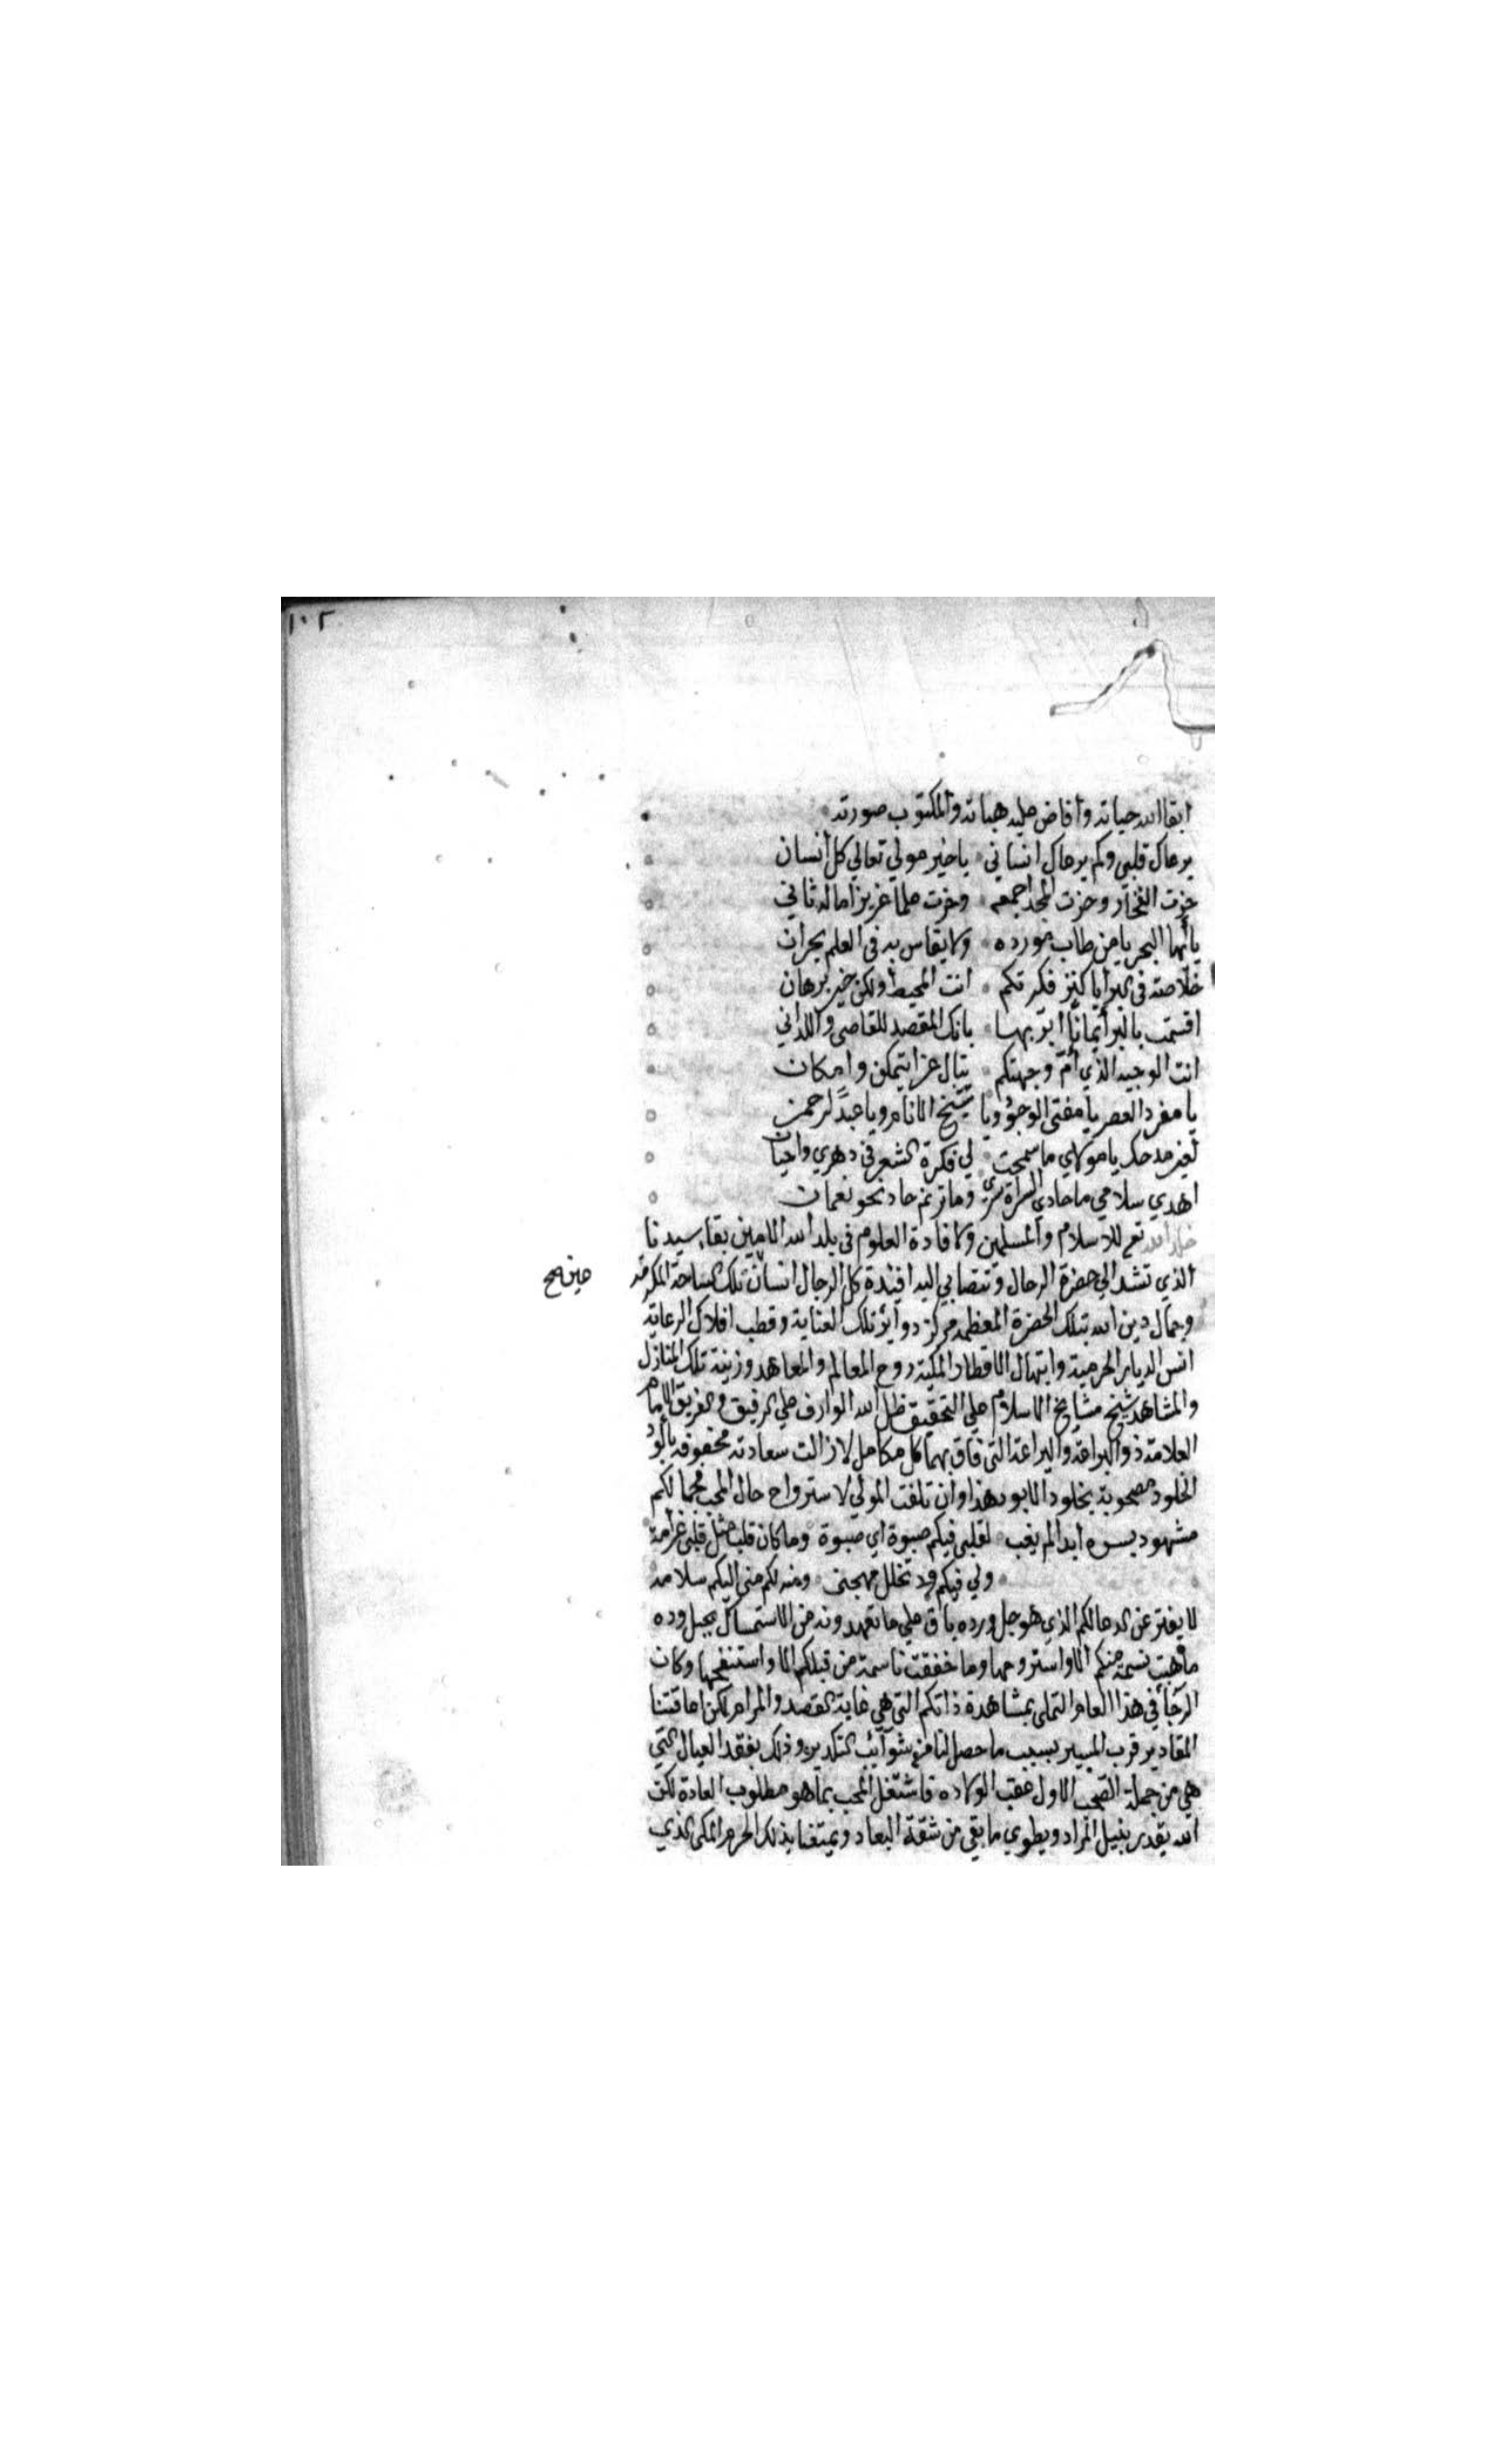 ١٠٢
ابقا الله حياته وأفاض عليه هباته والمكتوب صورته
يرعاك قلبي وكم يرعاك انساني ۰ ياخير مولي تعالي كل أنسان
حزت الفخار وحزت المجد اجمعه ۰ وحزت علما غزيرا ماله ثاني
يأيها البحر يا من طاب مورده ۰ ولا يقاس به في العلم بحران
خلاصة في البرايا كنز فكرتكم ۰ انت المحيط ولكن خير برهان
اقسمت بالبر أيمانًا ابرّ بها ۰ بانك المقصد للقاصي والداني
انت الوجيه الذي أمّ وجهتكم ۰ ينال عزا بتمكن وامكان
يا مفرد العصر يا مفتي الوجود ويا شيخ الانام ويا عبدًا لرحمن
لغير مدحك يا مولاي ما سمحت ۰ لي فكرة الشعر في دهري واحيان
اهدي سلامي ما حادي السراة سري ۰ وما ترنم حاد نحو نعمان
خلد الله تعم للاسلام والمسلمين ولافادة العلوم في بلد الله الامين بقاء سيدنا
الذي تشد الي حضرة الرحال وتتصابي اليه افئدة كل الرجال انسان تلك الساحة المكرمة
عين صح
وجمال دين الله بتلك الحضرة المعظمه مركز دوائر تلك العناية وقطب افلاك الرعاية
انس الديار الحرمية وابتهال الاقطار المكية روح المعالم والمعاهد وزينة تلك المنازل
والمشاهد شيخ مشايخ الاسلام علي التحقيق ظل الله الوارف علي الرفيق والفريق الامام
العلامة ذو البراعة واليراعة التي فاق بهما كل مكامل لا زالت سعادته محفوفه بالود
الخلود مصحوبة بخلود الابو بهذا وان تلفت المولي لاسترواح حال المحب فجمالكم
مشهود بسره ابدا لم يغب ۰ لقلبي فيكم صبوة اي صبوة ۰ وما كان قلب مثل قلبي غرامه
۰ ولي فيكم ود تخلل مهجتي ۰ ومنه لكم مني اليكم سلامه
لا يفتر عن الدعا لكم الذي هو جل ورده باق علي ما تعهدونه من الاستمساك بحبل وده
ما هبت نسمة منكم الا واستروحها وما خفقت ناسمة من قبلكم الا واستنفحها وكان
الرجآ في هذا العام التملي بمشاهدة ذاتكم التي هي غاية القصد والمرام لكن اعاقتنا
المقادير قرب المسير بسبب ما حصل لنا من شوآئب التكدير وذلك بفقد العيال التي
هي من جملة الصحب الاول عقب الولاده فاشتغل المحب بما هو مطلوب العادة لكن
الله يقدر بنيل المراد ويطوي ما بقي من شقة البعاد ويمتعنا بذلك الحرم المكي الذي